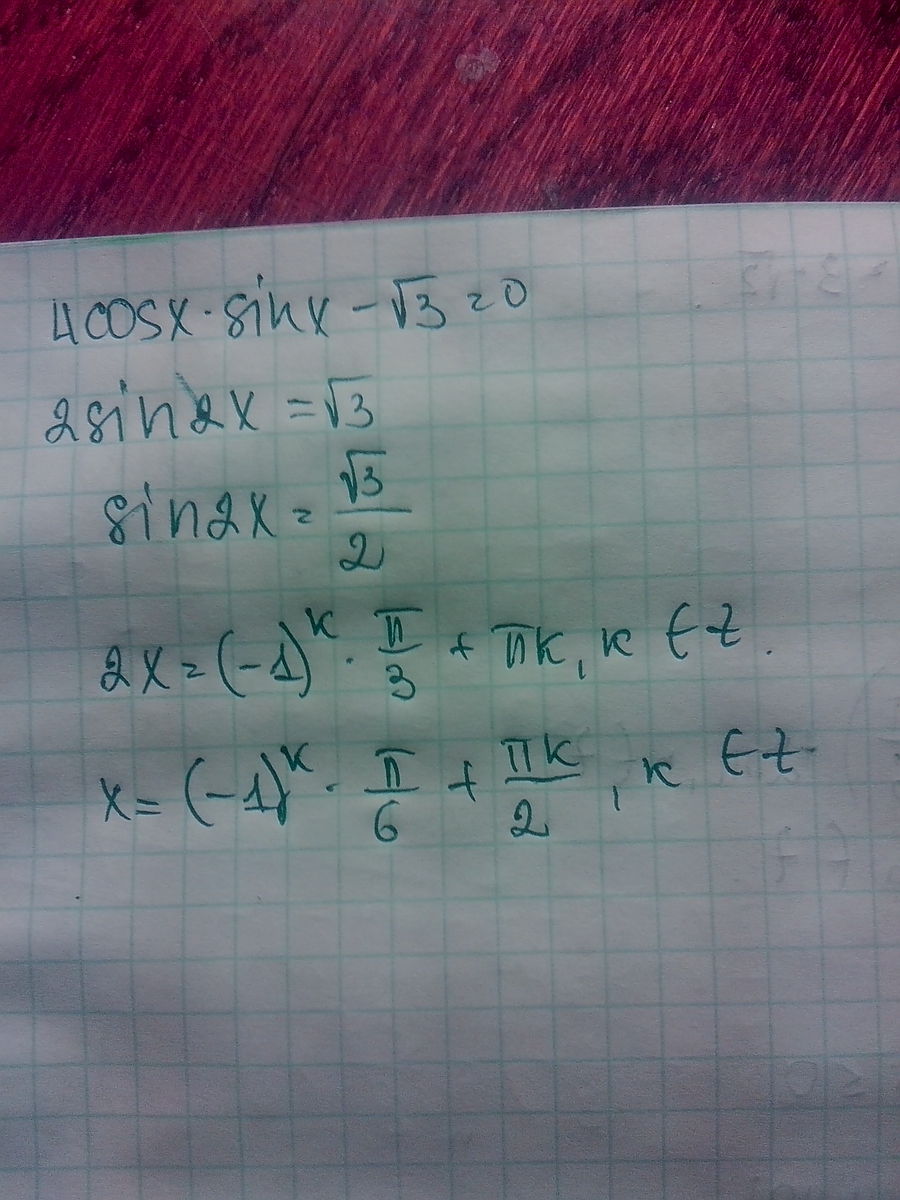 4cosx·sinx-√3=0
2sin2x=√3
sin2x=√3/2
2x=(-1)^k·π/3+πk, k∈z.
x=(-1)^k·π/6+πk/2, k∈z.